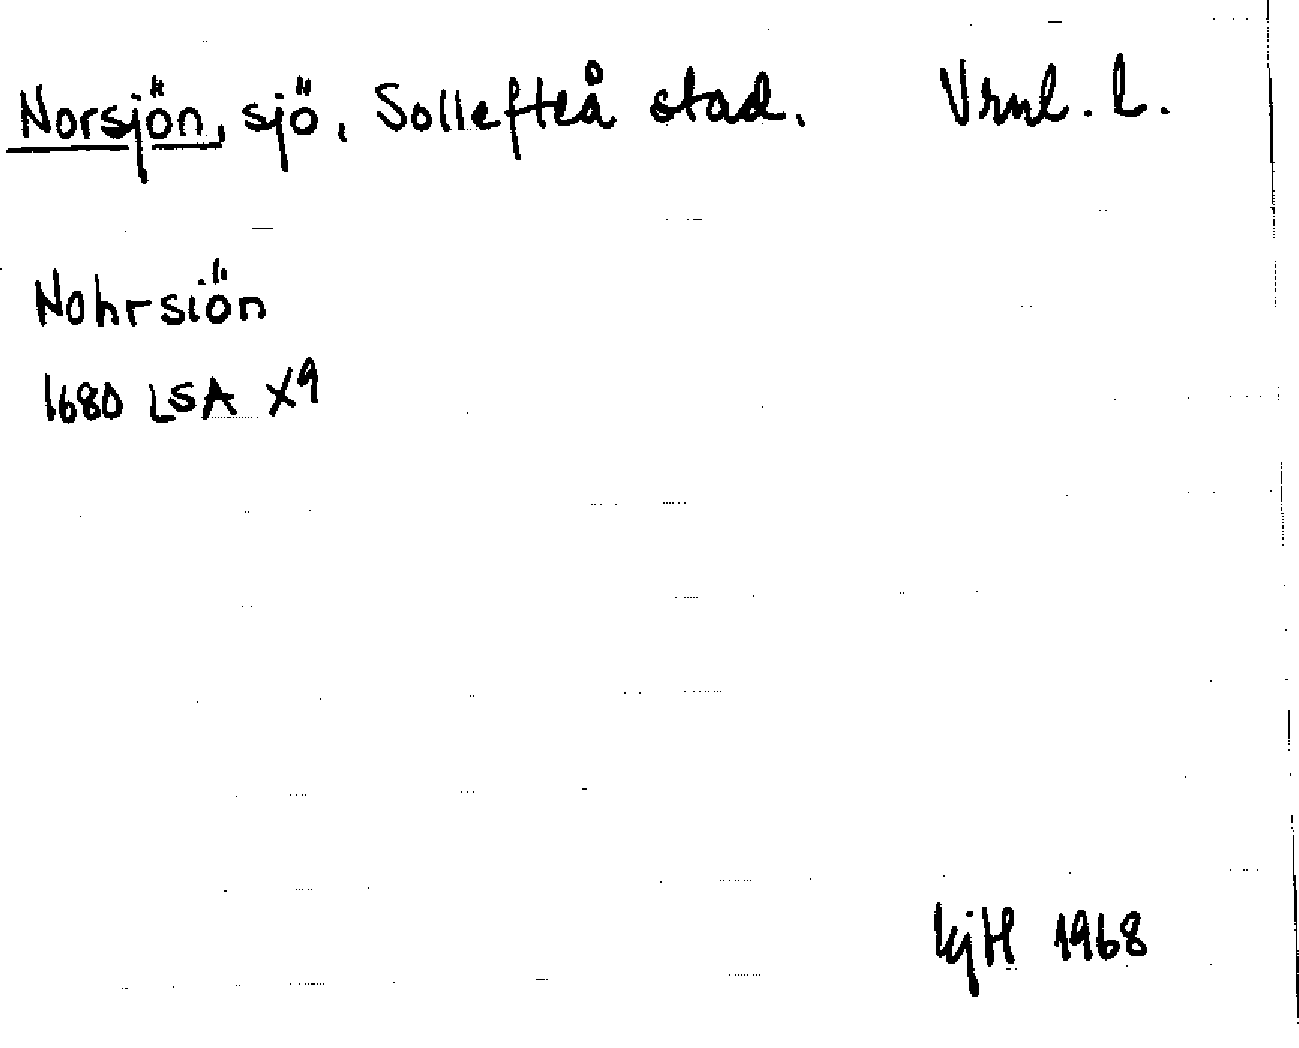 Norsjön, sjö, Sollefteå stad. Vrml. L.
Nohrsiön
1680 LSA X9
kjH 1968